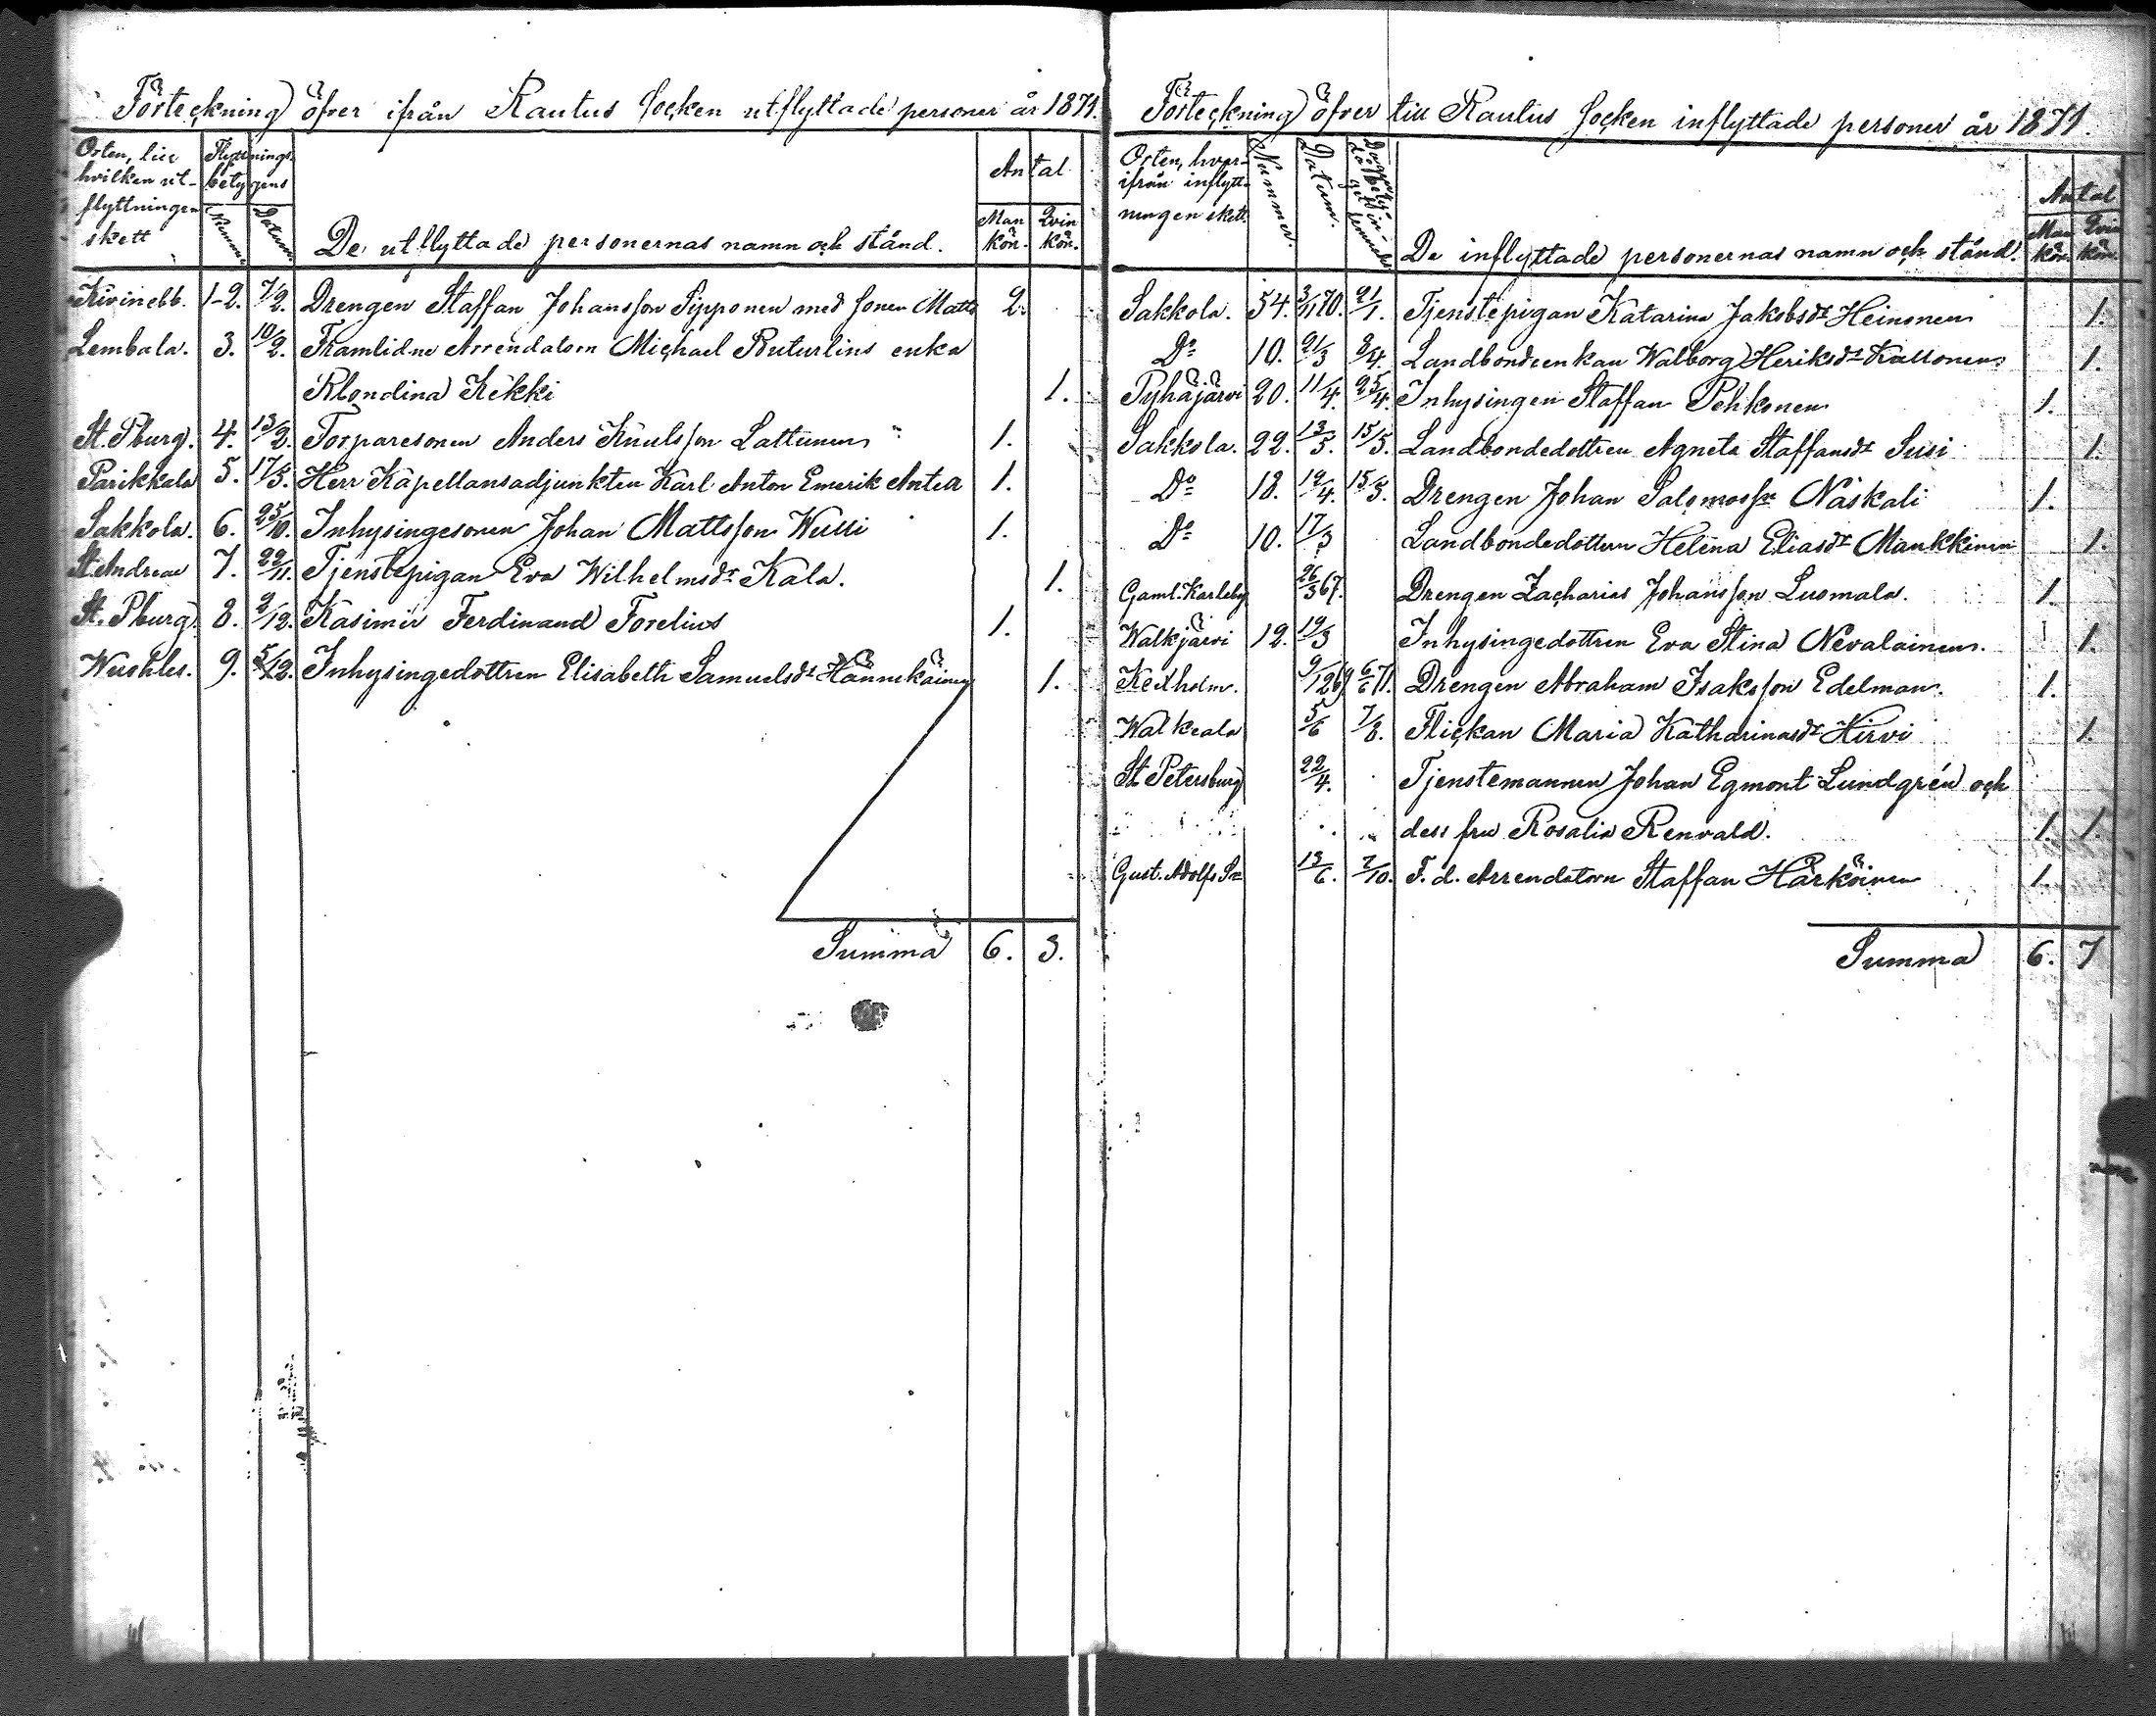 Förteckning öfver ifrån Rautus Socken utflyttade personer år 1871.
Orten, till hvilken utflyttningen skett
Flyttningsbetygens
Numm. Datum.
De utflyttade personernas namn och stånd.
Antal
Mankön. Qvinkön.
Kivinebb. 1-2. 7/2. Drengen Staffan Johansson Sipponen med sonen Matts 2.
Lembala. 3. 10/2. Framlidne Arrendatorn Michael Buturlins enka
Blondina Kekki 1.
St. Pburg. 4. 13/2. Torparesonen Anders Knutsson Lattunen 1.
Parikkala 5. 17/5. Herr Kapellansadjunkten Karl Anton Emerik Antell 1.
Sakkola. 6. 25/10. Inhysingesonen Johan Mattsson Wulli 1.
St. Andreae 7. 22/11. Tjenstepigan Eva Wilhelmsdr Kala. 1.
St. Pburg 8. 2/12. Kasimir Ferdinand Forelius 1.
9. 5/12. Inhysingedottren Elisabeth Samuelsdr Hännikäinen 1.
Summa 6. 3.
Förteckning öfver till Rautus Socken inflyttade personer år 1871.
Orten, hvarifrån inflyttningen skett
Nummer.
Datum.
De inflyttade personernas namn och stånd.
Antal
Mankön. Qvinkön.
Sakkola. 54. 3/11 70. 21/1. Tjenstepigan Katarina Jakobsdr Heinonen 1.
Do 10. 21/3 2/4. Landbondeenkan Walborg Heriksdr Kallonen 1.
Pyhäjärvi 20. 11/4. 25/4. Inhysingen Staffan Pehkonen 1.
Sakkola. 22. 13/5. 15/5. Landbondedottren Agneta Staffansdr Susi 1.
Do 18. 12/4. 15/5. Drengen Johan Salomonsson Näskali 1.
Do 10. 17/3 Landbondedottren Helena Eliasdr Maukkinen 1.
Gaml. Karleby 26/3 67. Drengen Zacharias Johansson Luomala. 1.
Walkjärvi 12. 19/3 Inhysingedottren Eva Stina Nevalainen. 1.
Kexholm. 9/12 69 6/6 71. Drengen Abraham Isaksson Edelman. 1.
Walkeala 5/6 7/8. Flickan Maria Katharinasdr Hirvi 1.
St. Petersburg 22/4. Tjenstemannen Johan Egmont Lundgrén och
dess fru Rosalia Renvald. 1. 1.
Gust. Adolfs Sn 13/6. 2/10. F. d. Arrendatorn Staffan Härköinen 1.
Summa 6. 7